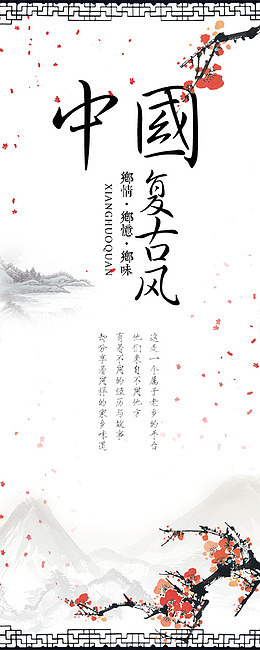 中國
复古风
鄉情·鄉憶·鄉味
XIANGHUOQUAN
这是一个属于老乡的平台
他们来自不同地方
有着不同的经历与故事
却分享着同样的家乡味道